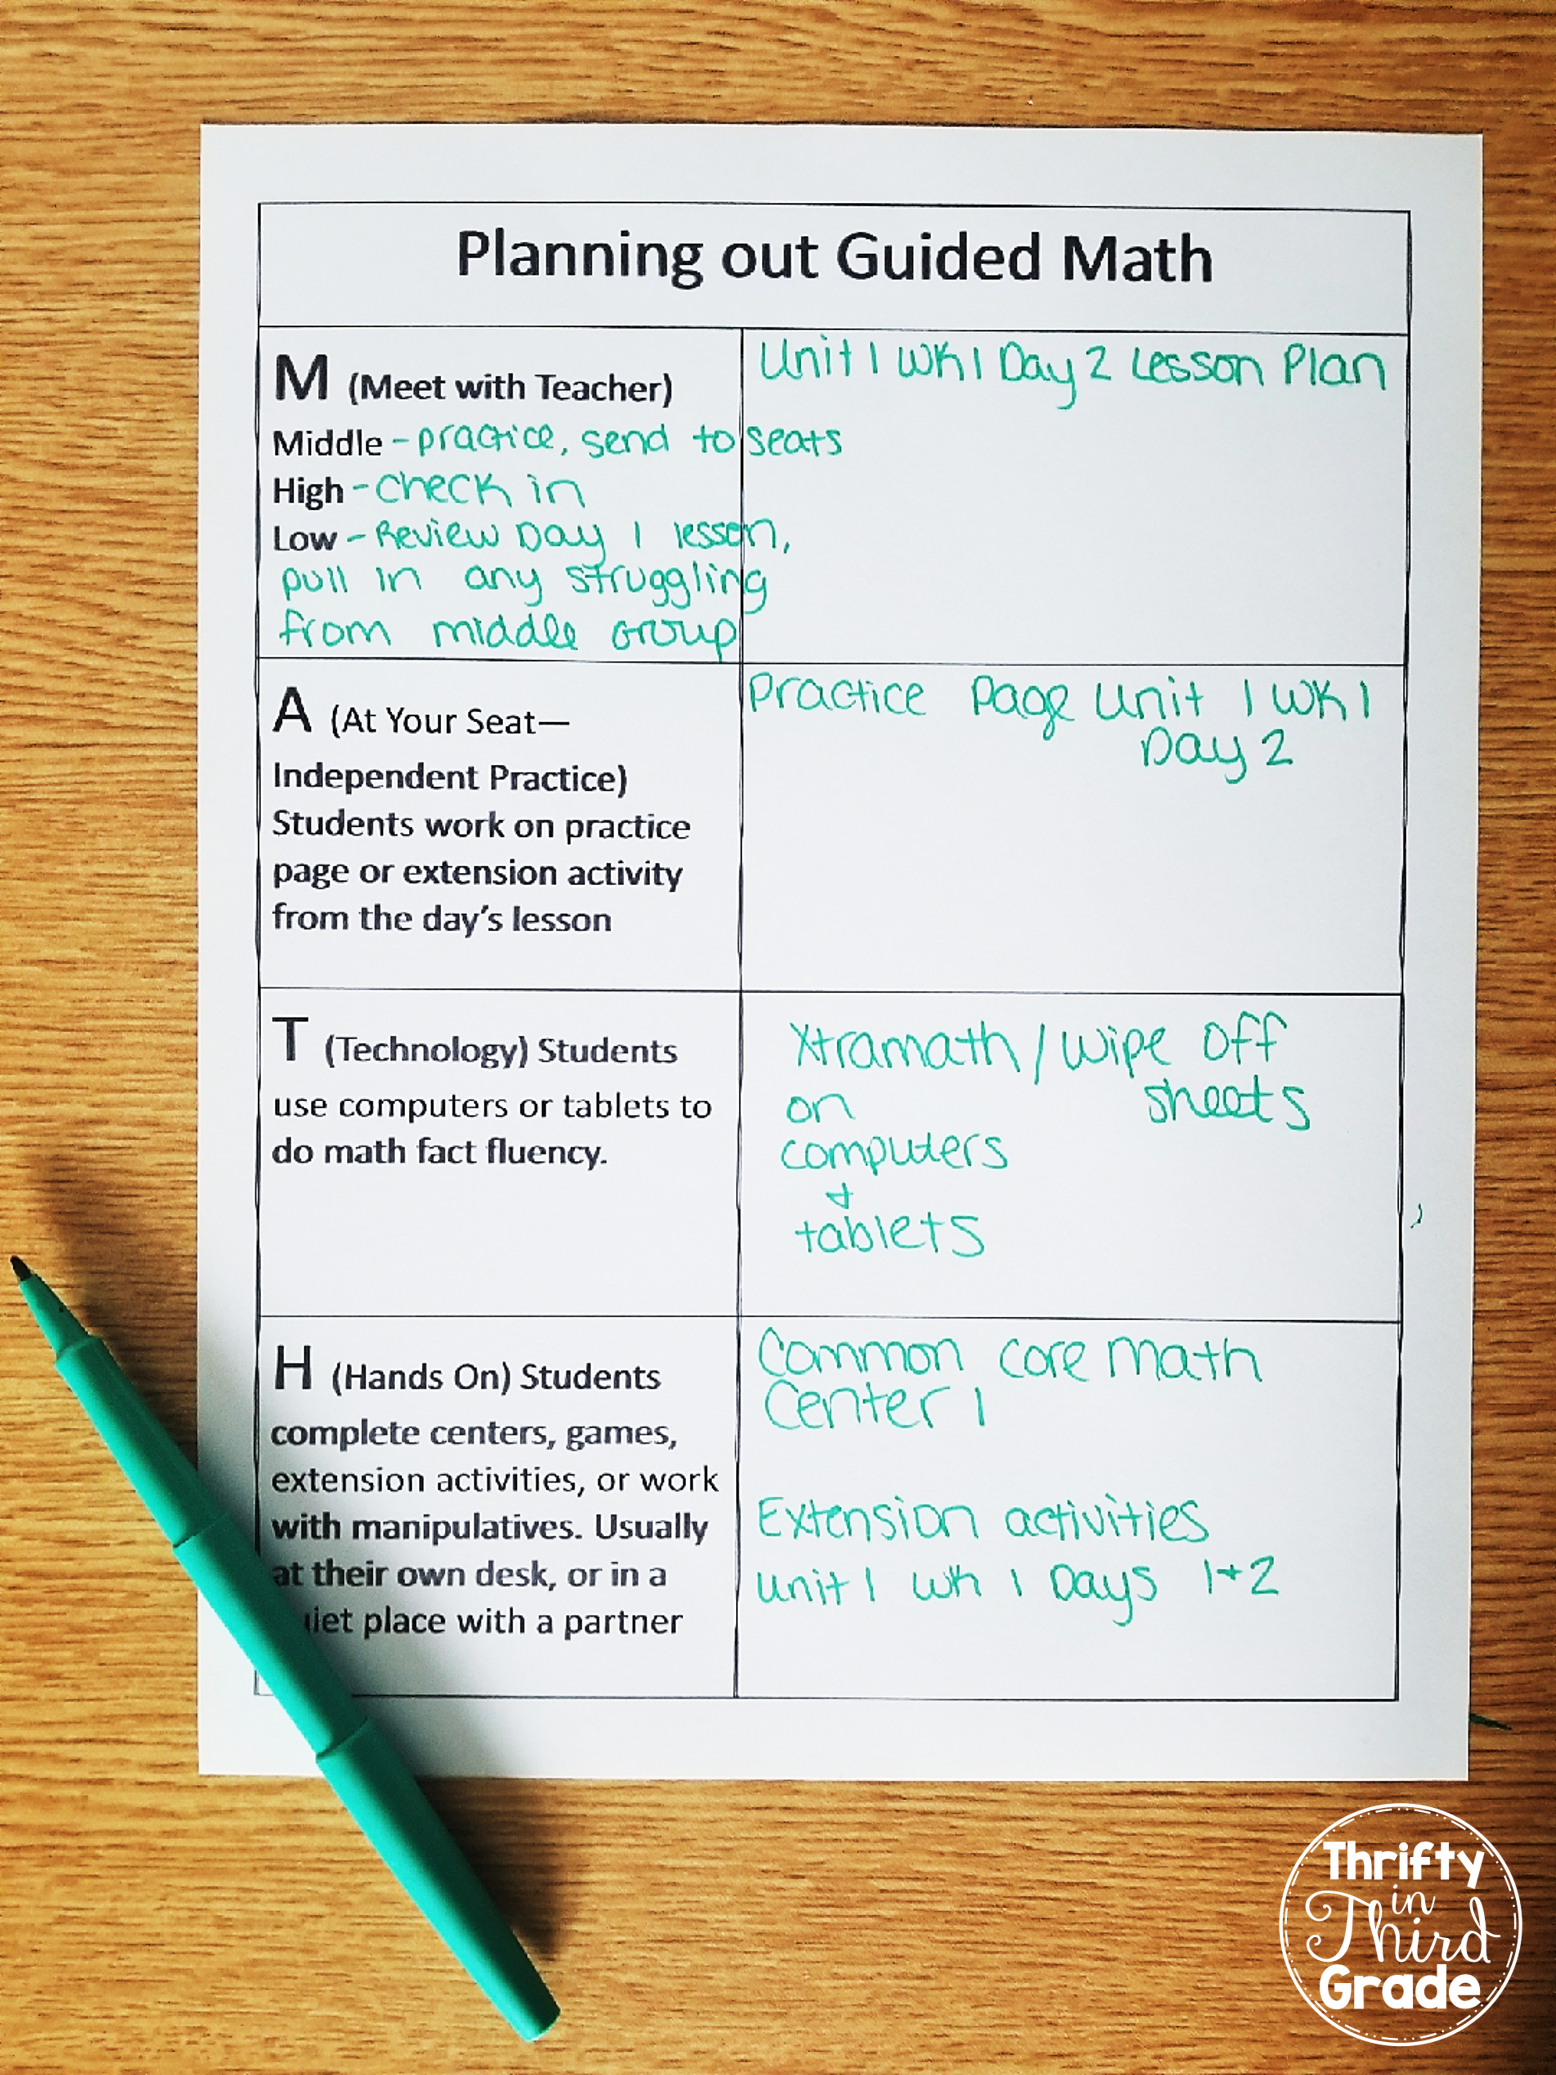 Planning out Guided Math
M (Meet with Teacher)
Middle - practice, send to seats
High - check in
Low - Review Day 1 lesson,
pull in any struggling
from middle group
Unit 1 WK 1 Day 2 Lesson Plan
A (At Your Seat—
Independent Practice)
Students work on practice
page or extension activity
from the day's lesson
Practice Page Unit 1 WK 1
Day 2
T (Technology) Students
use computers or tablets to
do math fact fluency.
Xtramath / Wipe off
on sheets
computers
+
tablets
H (Hands On) Students
complete centers, games,
extension activities, or work
with manipulatives. Usually
at their own desk, or in a
place with a partner
Common Core Math
Center 1
Extension activities
Unit 1 Wk 1 Days 1+2
Thrifty
in
Third
Grade